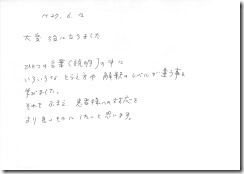 H27.6.12
大変 勉強になりました
ひとつの言葉(説明)の中に
いろいろな とらえ方や 解釈のレベルが違う事を
学びました。
それをふまえ、患者様への対応を
より良いものにしたいと思います。